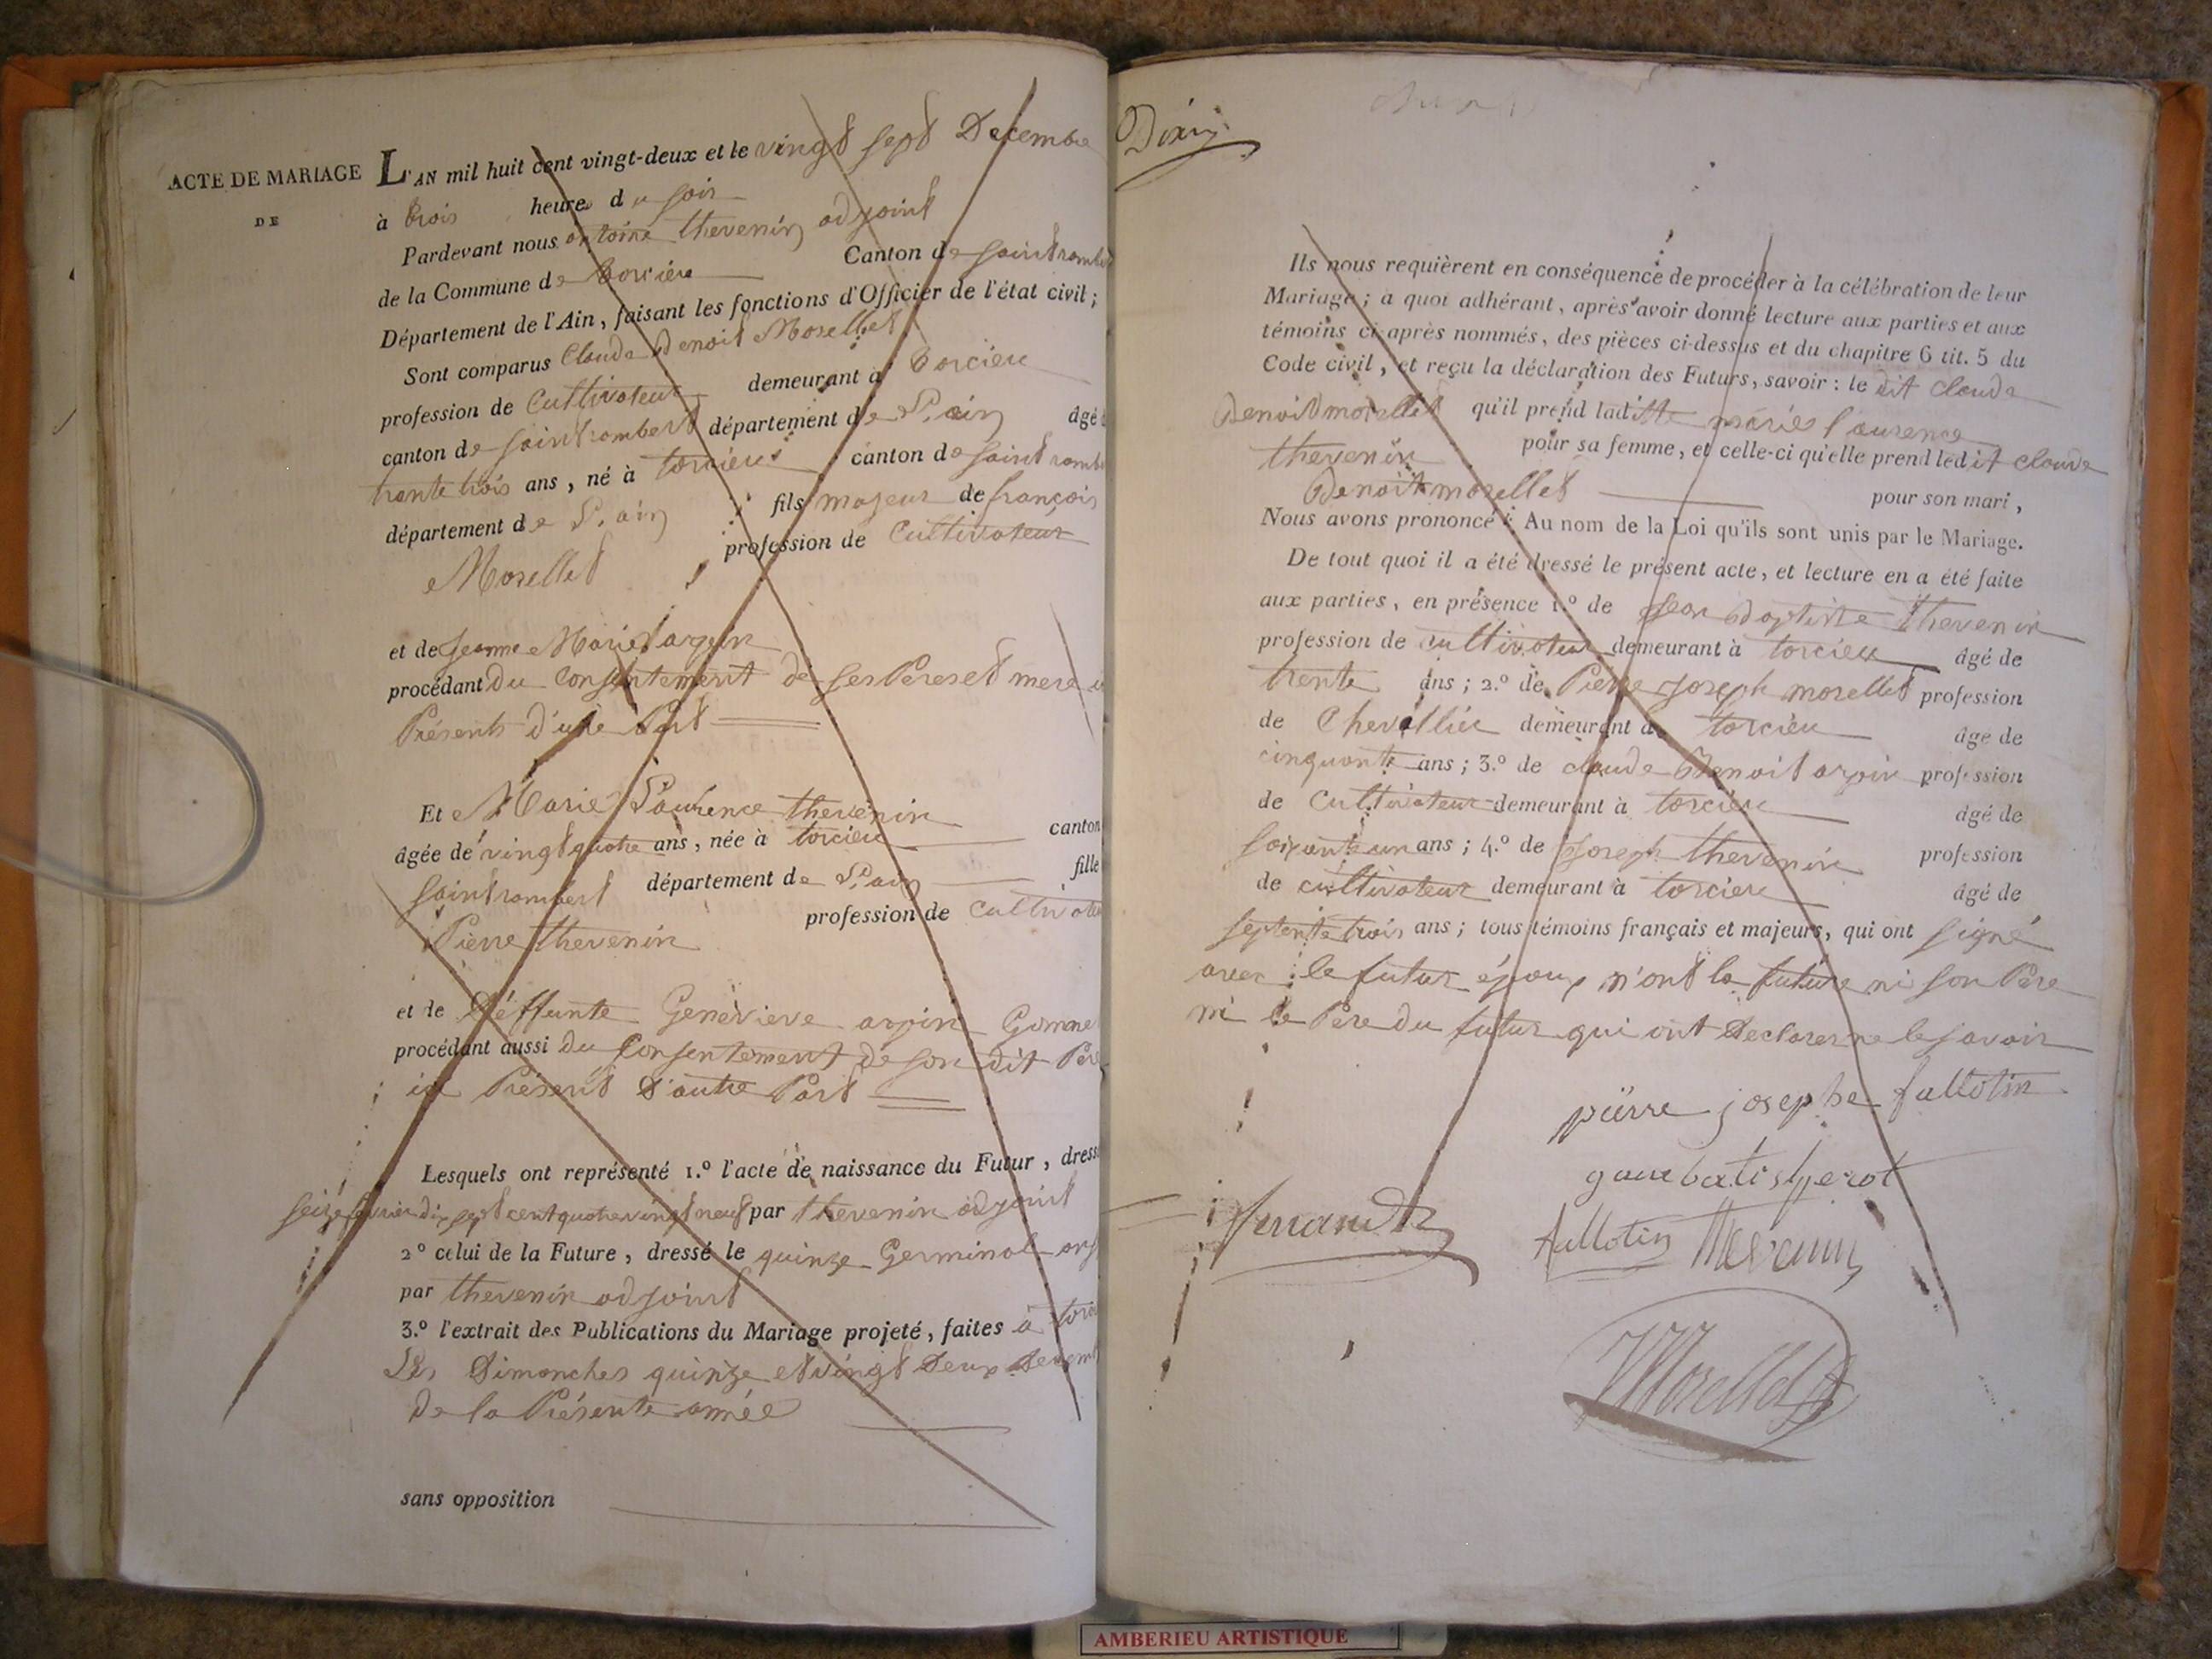 ACTE DE MARIAGE
DE
L'AN mil huit cent vingt-deux et le vingt sept Decembre
à trois heures du soir
Pardevant nous antoine thevenin adjoint
de la Commune de torcieu Canton de saint rambert
Département de l'Ain, faisant les fonctions d'Officier de l'état civil ;
Sont comparus Claude Benoit Morellet
profession de Cultivateur demeurant à torcieu
canton de saint rambert département de L'ain âgé
trante trois ans, né à torcieu canton de saint ramb
département de L'ain fils majeur de françois
Morellet profession de Cultivateur
et de jeanne Marie arpin
procédant du Consentement de ses Pere et mere
Présents d'une Part
Et Marie Laurence thevenin
âgée de vingt quatre ans, née à torcieu canton
saint rambert département de L'ain fille
Pierre thevenin profession de Cultivate
et de Déffunte Geneviève arpin
procédant aussi du Consentement de son dit Pere
ici Présent D'autre Part
Lesquels ont représenté 1.º l'acte de naissance du Futur, dress
seize fevrier dix sept cent quatre vingt neuf par thevenin adjoint
2º celui de la Future, dressé le quinze Germinal an
par thevenin adjoint
3.º l'extrait des Publications du Mariage projeté, faites à torci
Les Dimanches quinze et vingt Deux decemb
De la Présente année
sans opposition
Ils nous requièrent en conséquence de procéder à la célébration de leur
Mariage ; à quoi adhérant, après avoir donné lecture aux parties et aux
témoins ci-après nommés, des pièces ci-dessus et du chapitre 6 tit. 5 du
Code civil, et reçu la déclaration des Futurs, savoir : le dit claude
Benoit morellet qu'il prend laditte marie laurence
thevenin pour sa femme, et celle-ci qu'elle prend ledit claude
Benoit morellet pour son mari,
Nous avons prononcé : Au nom de la Loi qu'ils sont unis par le Mariage.
De tout quoi il a été dressé le présent acte, et lecture en a été faite
aux parties, en présence 1.º de jean Baptiste thevenin
profession de cultivateur demeurant à torcieu âgé de
trente ans ; 2.º de Pierre joseph morellet profession
de Chevallier demeurant à torcieu âgé de
cinquante ans ; 3.º de claude Benoit arpin profession
de Cultivateur demeurant à torcieu âgé de
soixante un ans ; 4.º de joseph thevenin profession
de cultivateur demeurant à torcieu âgé de
septente trois ans ; tous témoins français et majeurs, qui ont signé
avec le futur époux n'ont la future ni son Pere
ni le Pere du futur qui ont Declarer ne le savoir
pierre josephe fallotin
fallotin thevenin
Morellet
AMBERIEU ARTISTIQUE